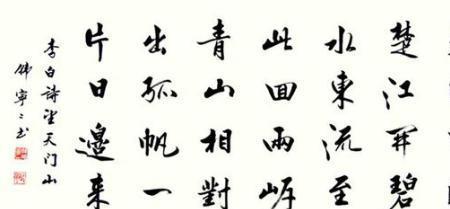 楚江開碧
水東流至
此回兩岸
青山相對
出孤帆一
片日邊来
李白詩望天门山
寧々书